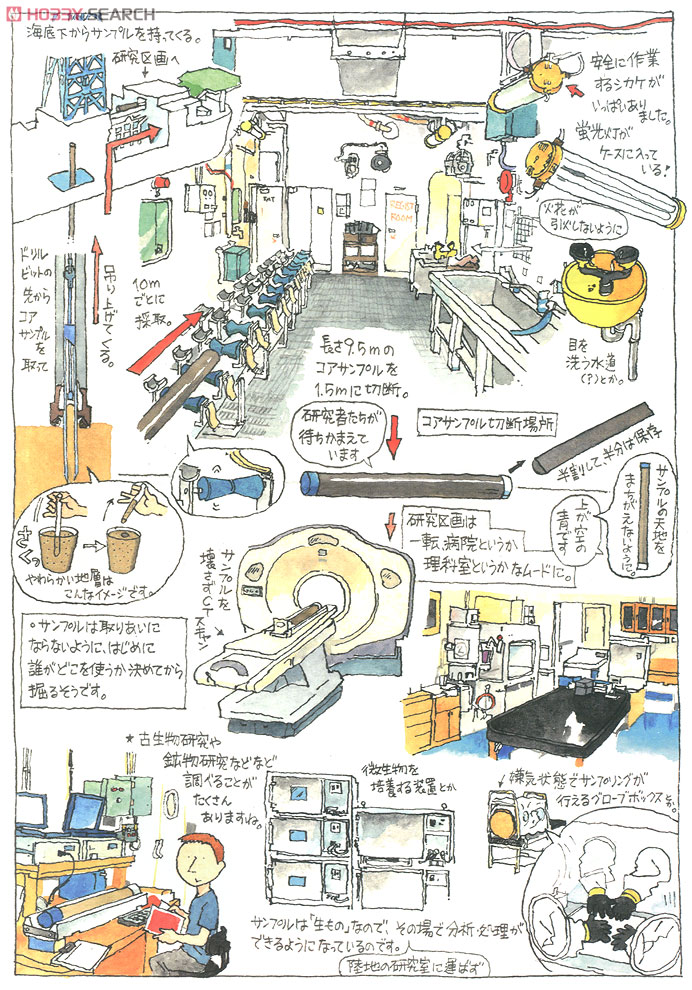 HOBBY SEARCH
海底下からサンプルを持ってくる。
研究区画へ
ドリル
ビットの
先から
コア
サンプル
を
取って
吊り上げてくる。
10m
ごとに
採取。
EXIT
ROOM
安全に作業
するシカケが
いっぱいあり
ました。
蛍光灯が
ケースに入って
いる!
火花が
引火しないように
目を
洗う水道
(?)とか。
長さ9.5mの
コアサンプルを
1.5mに切断。
研究者たちが
待ちかまえて
います
コアサンプル切断場所
半割りして、半分は保存
サンプルの天地を
まちがえないように。
上が空の
青です。
さくっ
やわらかい地層は
こんなイメージです。
サンプルを
壊さずCTスキャン
研究区画は
一転、病院というか
理科室というかなムードに。
。サンプルは取りあいに
ならないように、はじめに
誰がどこを使うか決めてから
掘るそうです。
★古生物研究や
鉱物研究などなど
調べることが
たくさん
ありますね。
微生物を
培養する装置とか
嫌気状態でサンプリングが
行えるグローブボックスも。
サンプルは「生もの」なので、その場で分析・処理が
できるようになっているのです。
陸地の研究室に運ばず